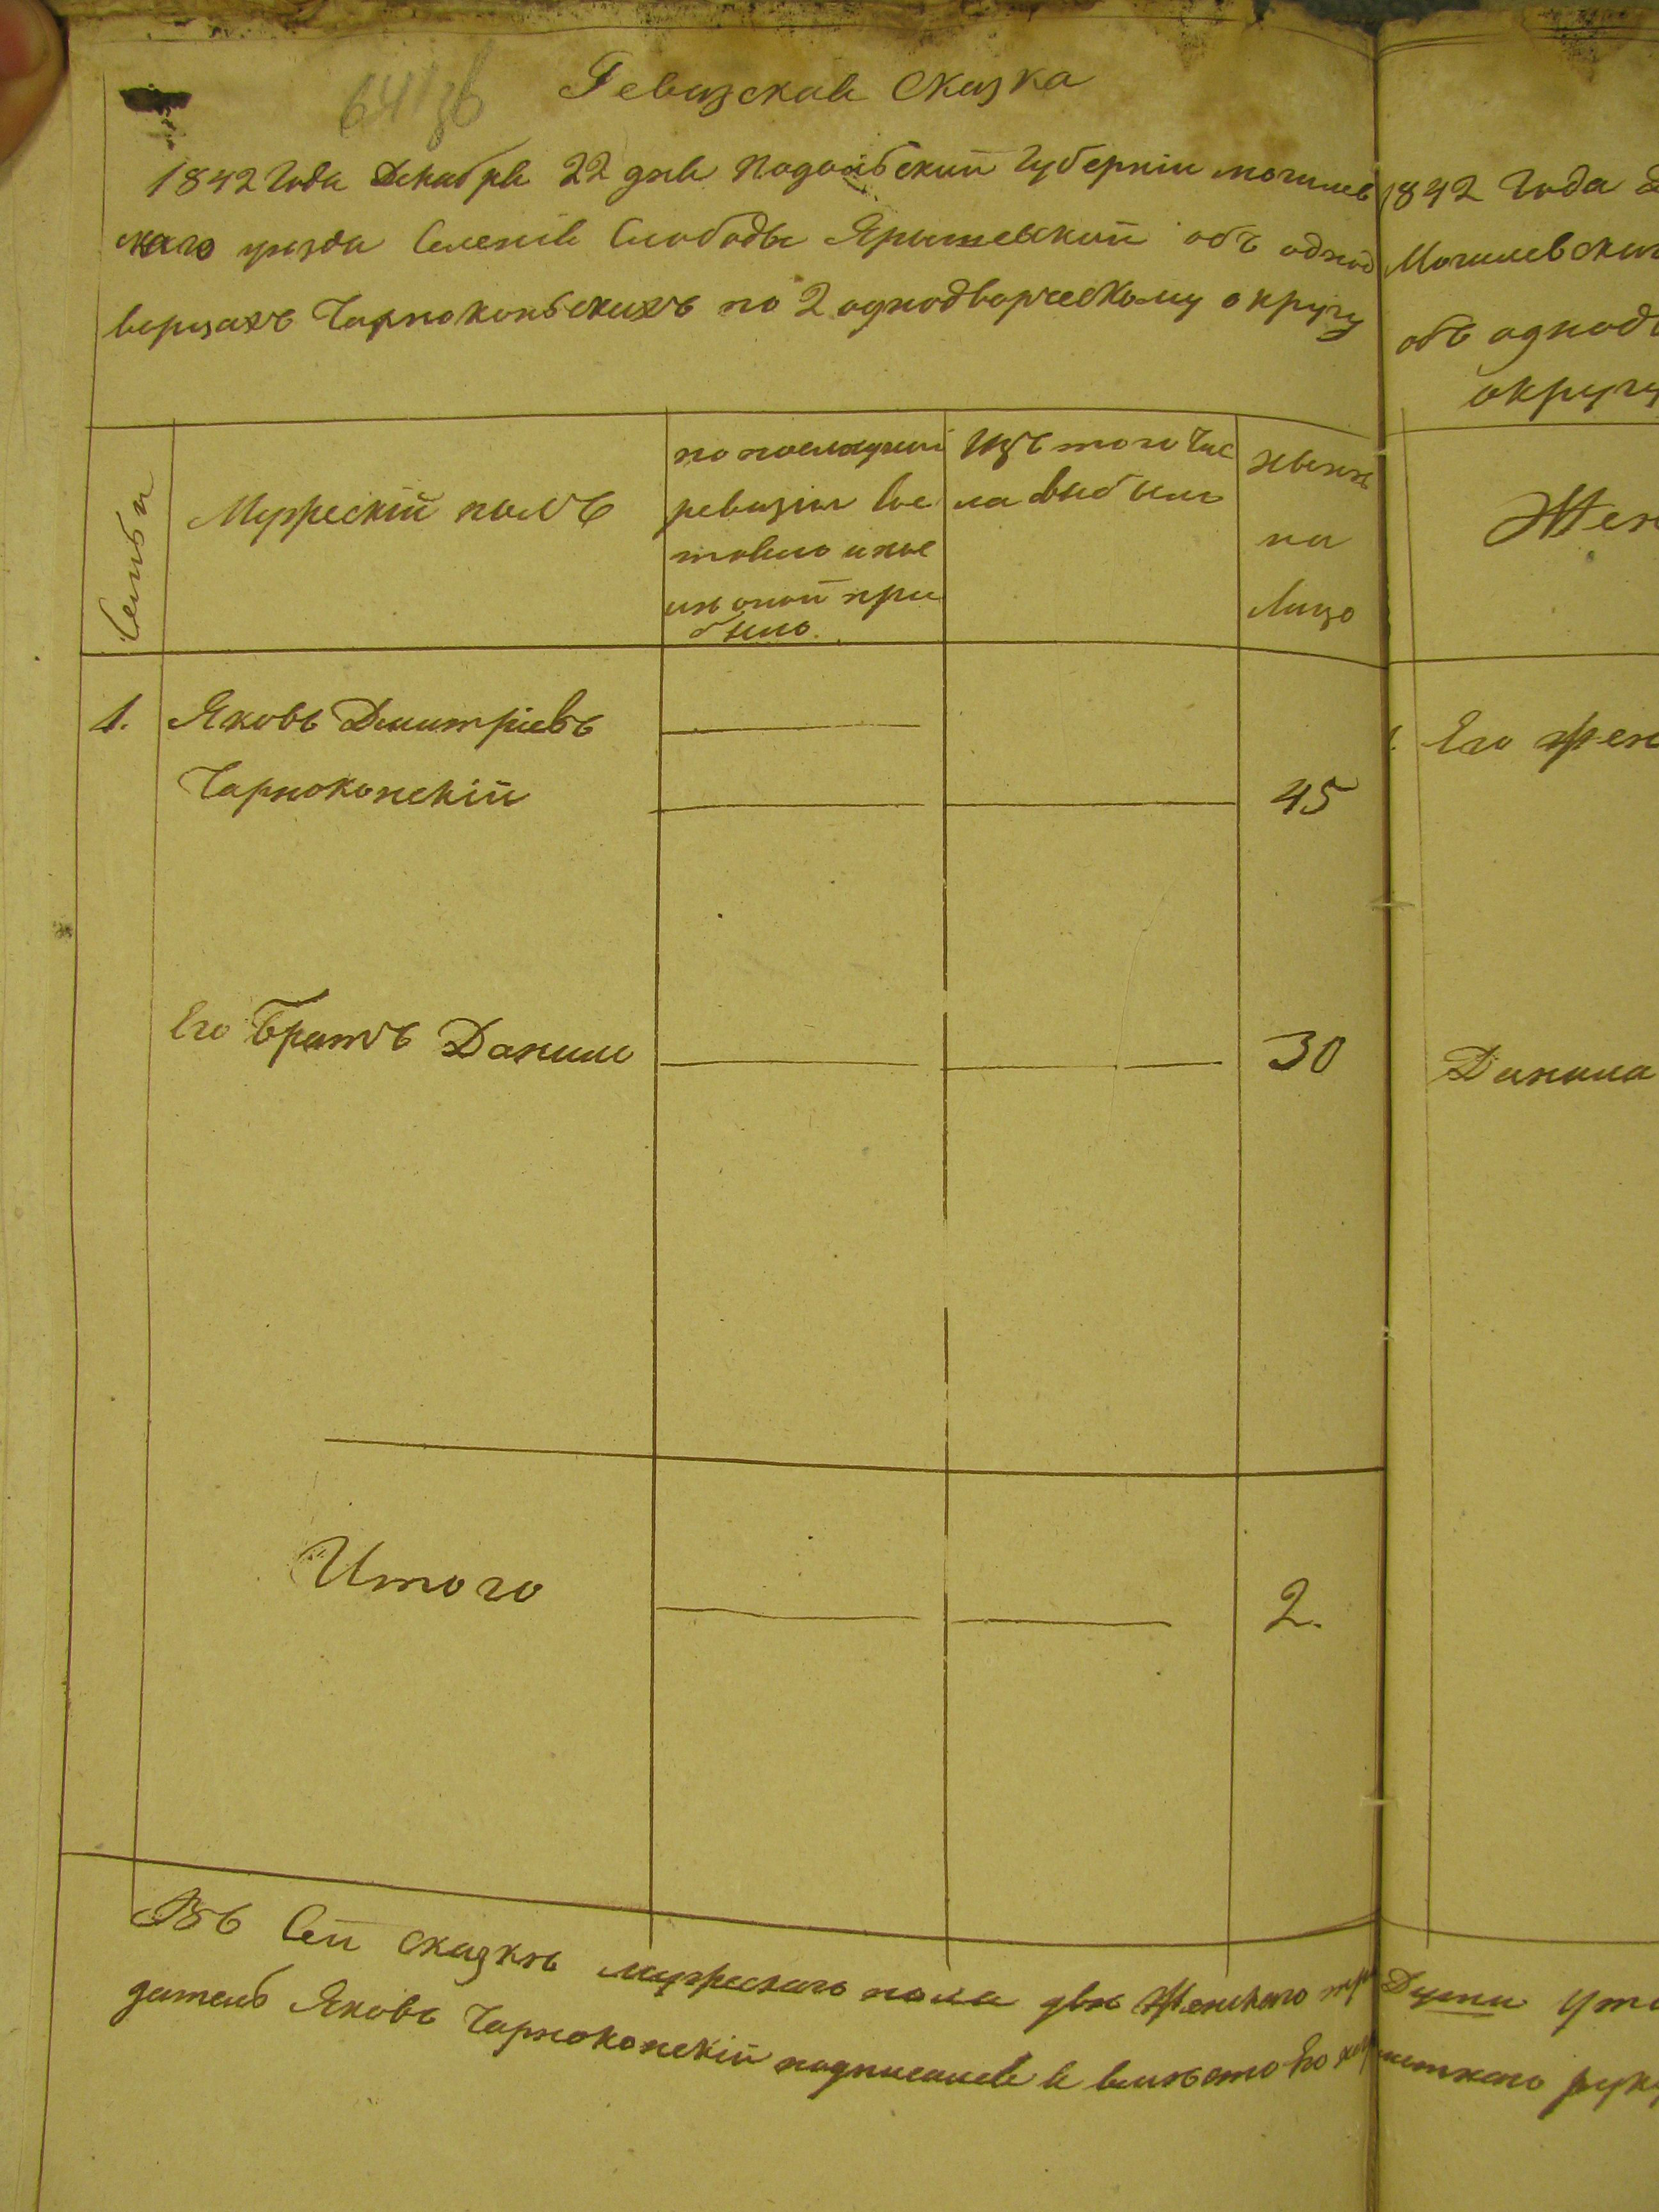 Ревизская Сказка
1842 Года Декабря 22 дня Подольской Губерніи могилев
скаго уѣзда Селенія Слободы Ярышевской объ однод
ворцахъ Чарноконьскихъ по 2 однодворческому округу
Семьи
Мужескій полъ
по последней
ревизіи сос
тояло и пос
лѣ оной при
было
Изъ того чис
ла выбыло
нынѣ
на
Лицо
1. Яковъ Дмитріевъ
Чарноконскій 45
Его Братъ Данило 30
Итого 2.
Въ Сей сказкѣ мужескаго пола двѣ Женскаго
датель Яковъ Чарноконскій подписался а вмѣсто Его
1842 Года
Могилевска
объ однодв
округу
Жен
1. Его жен
Данила
Души
руку